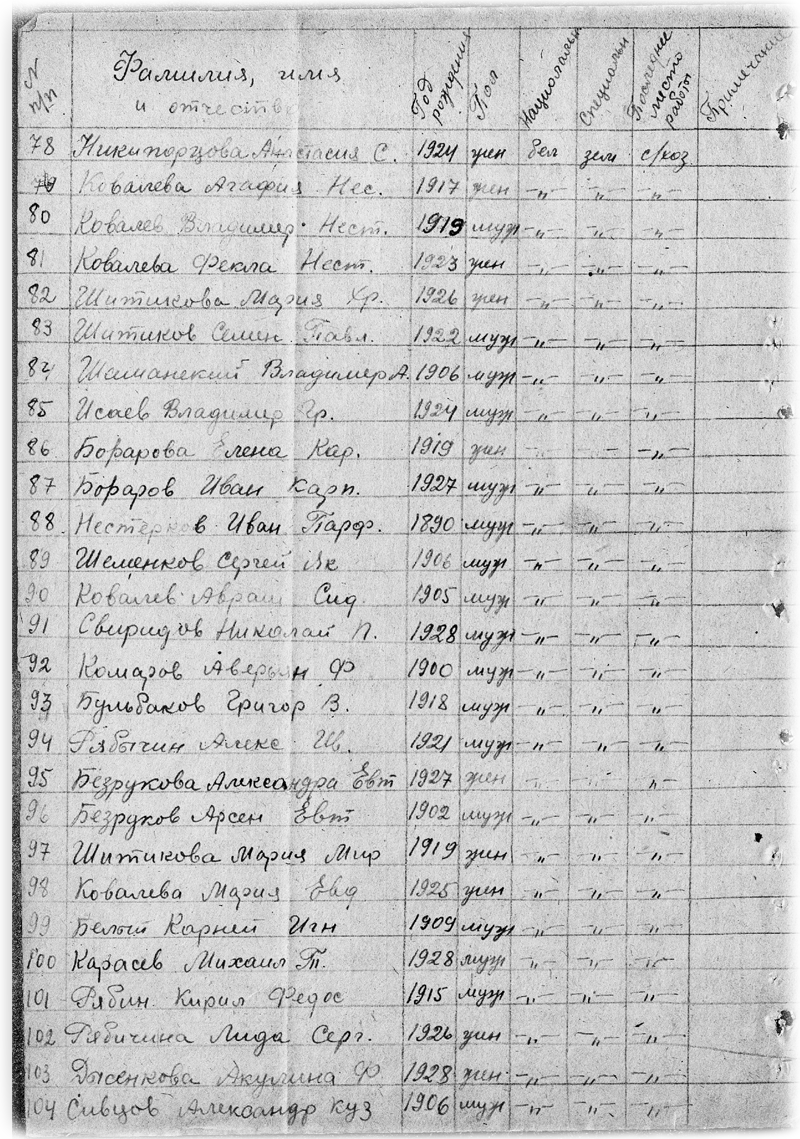 N п/п Фамилия, имя и отчество Год рождения Пол Национальн Специальн Последнее место работы Примечание
78 Никипорцова Анастасия С. 1924 жен бел зем с/хоз
79 Ковалева Агафия Нес. 1917 жен -"- -"- -"-
80 Ковалев Владимир Нест. 1919 муж -"- -"- -"-
81 Ковалева Фекла Нест. 1923 жен -"- -"- -"-
82 Шитикова Мария Хр. 1926 жен -"- -"- -"-
83 Шитиков Семен Павл. 1922 муж -"- -"- -"-
84 Шеманский Владимер А. 1906 муж -"- -"- -"-
85 Исаев Владимир Гр. 1924 муж -"- -"- -"-
86 Бофарова Елена Кар. 1919 жен -"-
87 Бофаров Иван Карп. 1927 муж -"- -"- -"-
88 Нестерков Иван Парф. 1890 муж -"- -"- -"-
89 Шеменков Сергей Як 1906 муж -"- -"- -"-
90 Ковалев Аврам Сид. 1905 муж -"- -"- -"-
91 Свиридов Николай П. 1928 муж -"- -"- -"-
92 Комаров Аверьян Ф 1900 муж -"- -"- -"-
93 Бульбаков Григор В. 1918 муж -"- -"- -"-
94 Рябычин Алекс Ив. 1921 муж -"- -"- -"-
95 Безрукова Александра Евт 1927 жен -"- -"- -"-
96 Безруков Арсен Евт 1902 муж -"- -"- -"-
97 Шитикова Мария Мир 1919 жен -"- -"- -"-
98 Ковалева Мария Евд 1925 жен -"- -"- -"-
99 Белый Карней Игн 1909 муж -"- -"- -"-
100 Карасев Михаил Т. 1928 муж -"- -"- -"-
101 Рябин Кирил Федос 1915 муж -"- -"- -"-
102 Рябичина Лида Серг. 1926 жен -"- -"- -"-
103 Дысенкова Акулина Ф 1928 жен -"- -"- -"-
104 Сивцов Александр Куз 1906 муж -"- -"- -"-